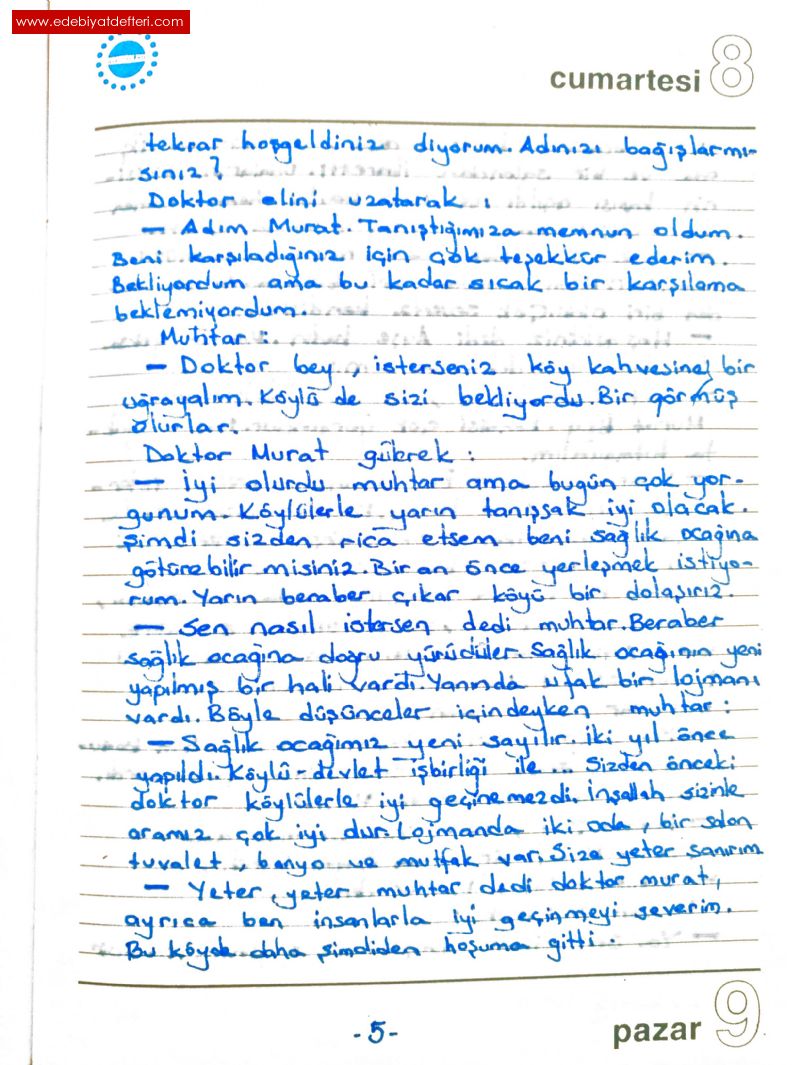 www.edebiyatdefteri.com
cumartesi 8
tekrar hoşgeldiniz diyorum. Adınızı bağışlarmı-
sınız?
Doktor elini uzatarak :
— Adım Murat. Tanıştığımıza memnun oldum.
Beni karşıladığınız için çok teşekkür ederim.
Bekliyordum ama bu kadar sıcak bir karşılama
beklemiyordum.
Muhtar :
— Doktor bey, isterseniz köy kahvesine bir
uğrayalım. Köylü de sizi bekliyordu. Bir görmüş
olurlar.
Doktor Murat gülerek :
— İyi olurdu muhtar ama bugün çok yor-
gunum. Köylülerle yarın tanışsak iyi olacak.
Şimdi sizden rica etsem beni sağlık ocağına
götürebilir misiniz. Bir an önce yerleşmek istiyo-
rum. Yarın beraber çıkar köyü bir dolaşırız.
— Sen nasıl istersen, dedi muhtar. Beraber
sağlık ocağına doğru yürüdüler. Sağlık ocağının yeni
yapılmış bir hali vardı. Yanında ufak bir lojmanı
vardı. Böyle düşünceler içindeyken muhtar :
— Sağlık ocağımız yeni sayılır. İki yıl önce
yapıldı. Köylü - devlet işbirliği ile ... Sizden önceki
doktor köylülerle iyi geçinemezdi. İnşallah sizinle
aramız çok iyi dur. Lojmanda iki oda, bir salon
tuvalet, banyo ve mutfak var. Size yeter sanırım
— Yeter, yeter muhtar dedi doktor murat,
ayrıca ben insanlarla iyi geçinmeyi severim.
Bu köyde daha şimdiden hoşuma gitti.
-5-
pazar 9